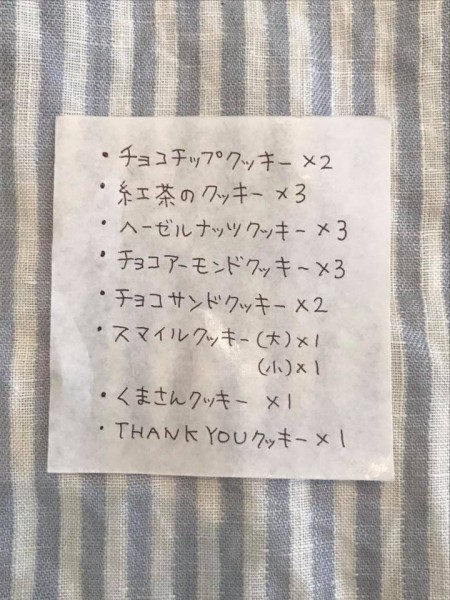 ・チョコチップクッキー ×2
・紅茶のクッキー ×3
・ヘーゼルナッツクッキー ×3
・チョコアーモンドクッキー ×3
・チョコサンドクッキー ×2
・スマイルクッキー(大)×1
(小)×1
・くまさんクッキー ×1
・THANK YOUクッキー ×1